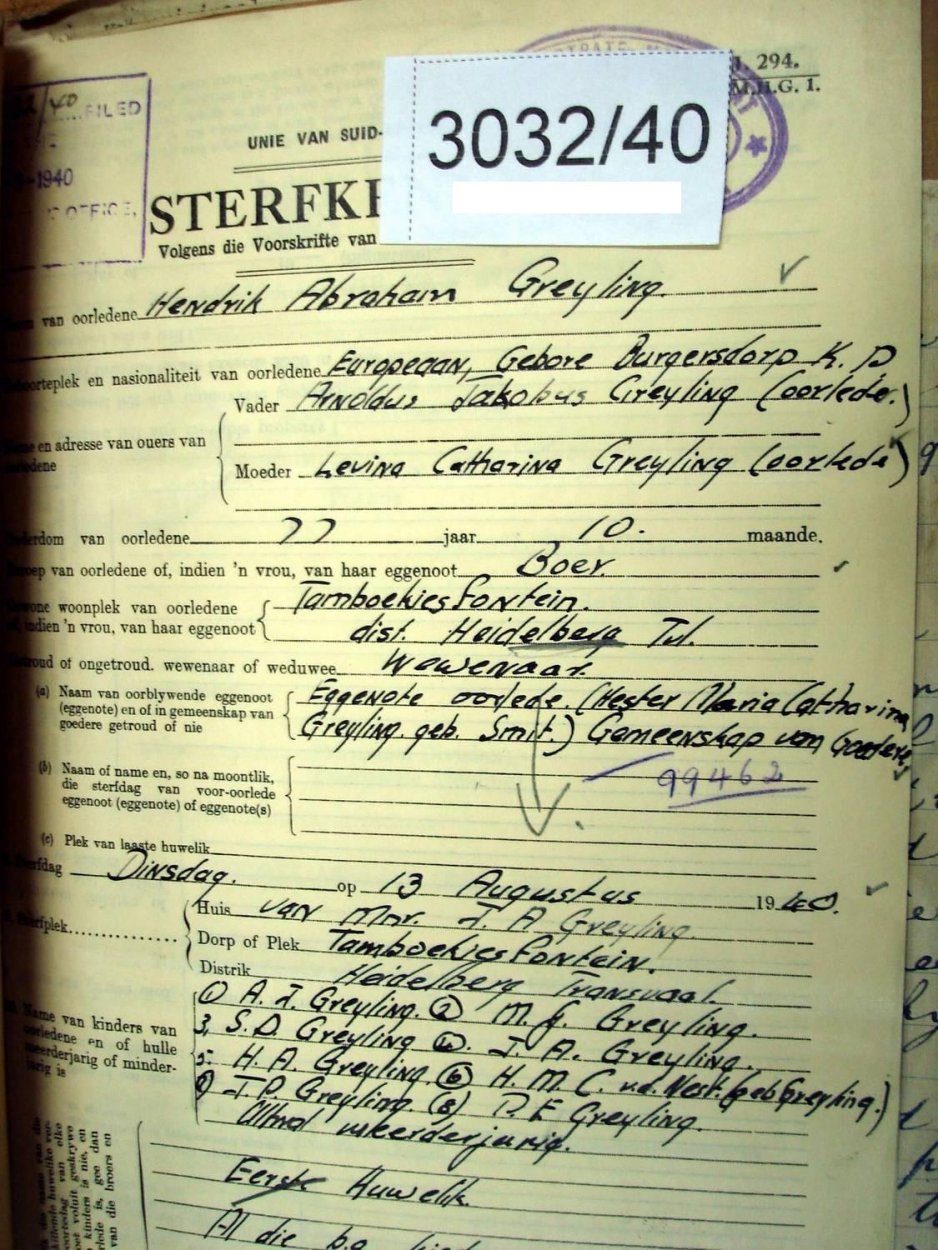 3032/40
294.
M.H.G. 1.
FILED
-1940
OFFICE,
UNIE VAN SUID-
STERFKE
Volgens die Voorskrifte van
van oorledene Hendrik Abraham Greyling.
nasionaliteit van oorledene Europeaan, Gebore Burgersdorp K. P
Vader Arnoldus Jakobus Greyling (oorlede.)
en adresse van ouers van
Moeder Levina Catharina Greyling (oorlede)
van oorledene 77 jaar 10. maande.
van oorledene of, indien 'n vrou, van haar eggenoot Boer.
woonplek van oorledene Tamboekiesfontein.
indien 'n vrou, van haar eggenoot dist. Heidelberg Tvl.
of ongetroud. wewenaar of weduwee Wewenaar.
(a) Naam van oorblywende eggenoot Eggenote oorlede. (Hester Maria Catharina
(eggenote) en of in gemeenskap van
goedere getroud of nie Greyling. geb. Smit.) Gemeenskap van Goedere
99462
(b) Naam of name en, so na moontlik,
die sterfdag van voor-oorlede
eggenoot (eggenote) of eggenote(s)
(c) Plek van laaste huwelik
Dinsdag. op 13 Augustus 1940.
Huis van Mnr. J. A Greyling.
Dorp of Plek Tamboekiesfontein.
Distrik Heidelberg Transvaal.
(1) A. J. Greyling. (2) M. J. Greyling.
Name van kinders van 3, S. D. Greyling (4). J. A. Greyling.
oorledene en of hulle
meerderjarig of minder- 5: H. A. Greyling. (6) H. M. C. v.d. Nest. (geb Greyling.)
jarig is
J. P. Greyling. (8) P. E Greyling.
Almal meerderjarig.
Eerste Huwelik.
Al die b.g.